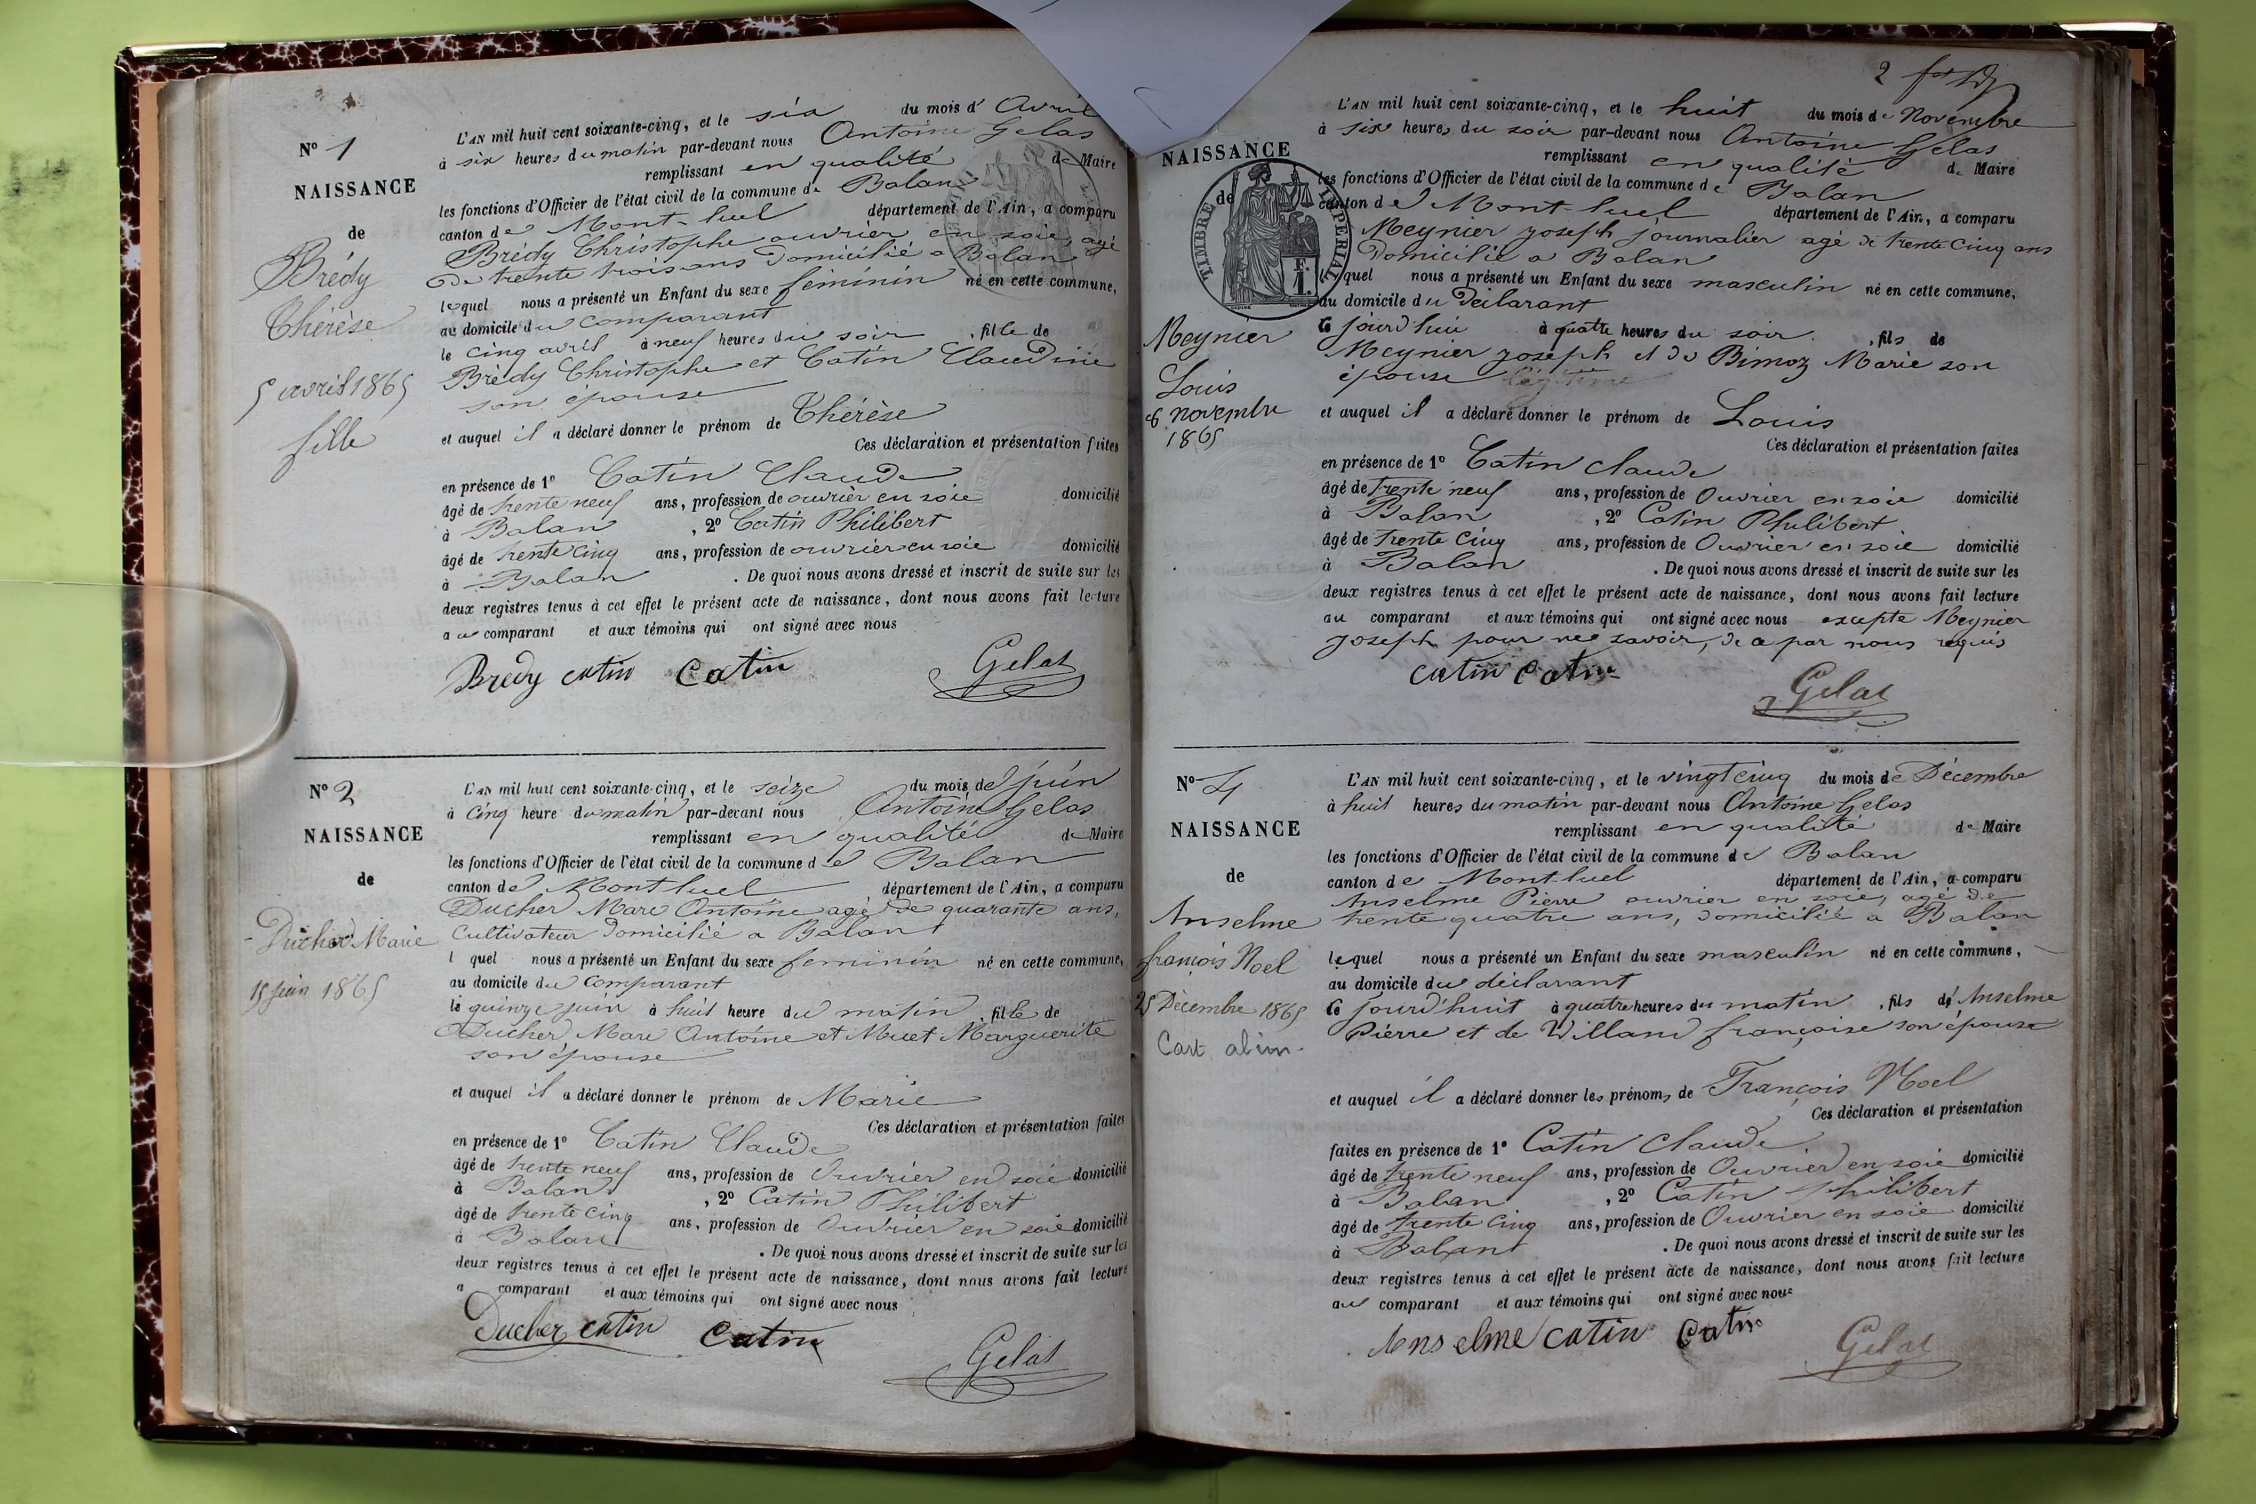 N° 1
NAISSANCE
de
Brédy
Thérèse
5 avril 1865
fille
L'AN mil huit cent soixante-cinq, et le six du mois d' Avril
à six heures du matin par-devant nous Antoine Gelas
remplissant en qualité de Maire
les fonctions d'Officier de l'état civil de la commune de Balan
canton de Mont-luel département de l'Ain, a comparu
Brédy Christophe ouvrier en soie, agé
de trente trois ans domicilié a Balan
lequel nous a présenté un Enfant du sexe féminin né en cette commune,
au domicile du comparant
le cinq avril à neuf heures du soir, fille de
Brédy Christophe et Catin Claudine
son épouse
et auquel il a déclaré donner le prénom de Thérèse
Ces déclaration et présentation faites
en présence de 1° Catin Claude
âgé de trente neuf ans, profession de ouvrier en soie domicilié
à Balan, 2° Catin Philibert
âgé de trente cinq ans, profession de ouvrier en soie domicilié
à Balan. De quoi nous avons dressé et inscrit de suite sur les
deux registres tenus à cet effet le présent acte de naissance, dont nous avons fait lecture
au comparant et aux témoins qui ont signé avec nous
Brédy catin Catin Gelas
N° 2
NAISSANCE
de
Ducher Marie
15 juin 1865
L'AN mil huit cent soixante-cinq, et le seize du mois de juin
à cinq heure du matin par-devant nous Antoine Gelas
remplissant en qualité de Maire
les fonctions d'Officier de l'état civil de la commune de Balan
canton de Montluel département de l'Ain, a comparu
Ducher Marc Antoine agé de quarante ans,
Cultivateur domicilié a Balan
l quel nous a présenté un Enfant du sexe feminin né en cette commune,
au domicile du comparant
le quinze juin à huit heure du matin, fille de
Ducher Marc Antoine et Muet Marguerite
son épouse
et auquel il a déclaré donner le prénom de Marie
Ces déclaration et présentation faites
en présence de 1° Catin Claude
âgé de trente neuf ans, profession de Ouvrier en soie domicilié
à Balan, 2° Catin Philibert
âgé de trente cinq ans, profession de Ouvrier en soie domicilié
à Balan. De quoi nous avons dressé et inscrit de suite sur les
deux registres tenus à cet effet le présent acte de naissance, dont nous avons fait lecture
a comparant et aux témoins qui ont signé avec nous
Ducher catin Catin
Gelas
2
NAISSANCE
de
TIMBRE IMPERIAL
Meynier
Louis
8 novembre
1865
L'AN mil huit cent soixante-cinq, et le huit du mois de Novembre
à six heures du soir par-devant nous Antoine Gelas
remplissant en qualité de Maire
les fonctions d'Officier de l'état civil de la commune de Balan
canton de Mont-luel département de l'Ain, a comparu
Meynier joseph journalier agé de trente cinq ans
domicilié a Balan
lequel nous a présenté un Enfant du sexe masculin né en cette commune,
au domicile du déclarant
ce jourd'hui à quatre heures du soir, fils de
Meynier joseph et de Bimoz Marie son
épouse légitime
et auquel il a déclaré donner le prénom de Louis
Ces déclaration et présentation faites
en présence de 1° Catin claude
âgé de trente neuf ans, profession de Ouvrier en soie domicilié
à Balan, 2° Catin Philibert
âgé de trente cinq ans, profession de Ouvrier en soie domicilié
à Balan. De quoi nous avons dressé et inscrit de suite sur les
deux registres tenus à cet effet le présent acte de naissance, dont nous avons fait lecture
au comparant et aux témoins qui ont signé avec nous excepte Meynier
joseph pour ne savoir, de a par nous requis
catin Catin
Gelas
N° 4
NAISSANCE
de
Anselme
françois Noel
25 Décembre 1865
Cart. alim.
L'AN mil huit cent soixante-cinq, et le vingt cinq du mois de Décembre
à huit heures du matin par-devant nous Antoine Gelas
remplissant en qualité de Maire
les fonctions d'Officier de l'état civil de la commune de Balan
canton de Mont-luel département de l'Ain, a comparu
Anselme Pierre ouvrier en soie, agé de
trente quatre ans, domicilié a Balan
lequel nous a présenté un Enfant du sexe masculin né en cette commune,
au domicile du déclarant
ce jourd'huit à quatre heures du matin, fils d' Anselme
Pierre et de Willand françoise son épouse
et auquel il a déclaré donner les prénoms de François Noel
Ces déclaration et présentation
faites en présence de 1° Catin claude
âgé de trente neuf ans, profession de Ouvrier en soie domicilié
à Balan, 2° Catin Philibert
âgé de trente cinq ans, profession de Ouvrier en soie domicilié
à Balan. De quoi nous avons dressé et inscrit de suite sur les
deux registres tenus à cet effet le présent acte de naissance, dont nous avons fait lecture
au comparant et aux témoins qui ont signé avec nous
Anselme catin Catin Gelas